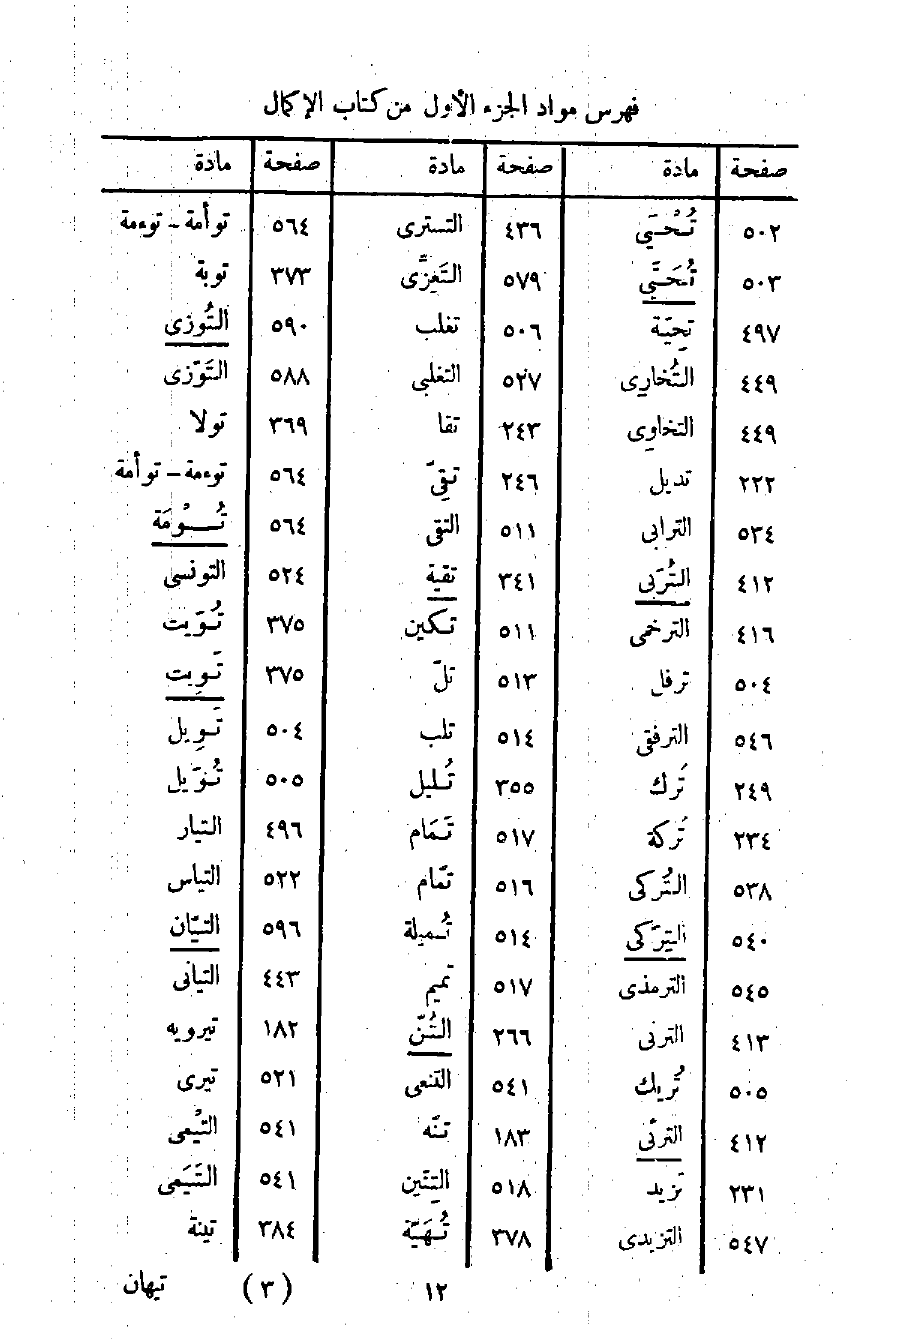 فهرس مواد الجزء الأول من كتاب الإكمال
صفحة مادة صفحة مادة صفحة مادة
٥٠٢ تُحْيَي ٤٣٦ التسترى ٥٦٤ توأمة ـ توءمة
٥٠٣ ٥٧٩ التَعِزّى ٣٧٣ توبة
٤٩٧ تِحيّة ٥٠٦ تغلب ٥٩٠ التُّوزى
٤٤٩ التُّخارِى ٥٢٧ التغلبى ٥٨٨ التَوّزى
٤٤٩ التخاوِى ٢٤٣ تقا ٣٦٩ تولا
٢٢٢ تديل ٢٤٦ تقِيّ ٥٦٤ توءمة ـ توأمة
٥٣٤ الترابى ٥١١ التقى ٥٦٤ تُـوْمَة
٤١٢ التُرَبى ٣٤١ تقية ٥٢٤ التونسى
٤١٦ الترخمى ٥١١ تكين ٣٧٥ تُوَيت
٥٠٤ ترفل ٥١٣ تلّ ٣٧٥ تَوِيت
٥٤٦ الترفقى ٥١٤ تلب ٥٠٤ تَوِيل
٢٤٩ تُرك ٣٥٥ تُليل ٥٠٥ تُوَيل
٢٣٤ تُركة ٥١٧ تَمَام ٤٩٦ التيار
٥٣٨ التُركى ٥١٦ تمّام ٥٢٢ التياس
٥٤٠ ٥١٤ تُميلة ٥٩٦ التيّان
٥٤٥ الترمذى ٥١٧ تميم ٤٤٣ التيانى
٤١٣ الترنى ٢٦٦ التُنّ ١٨٢ تيرويه
٥٠٥ تُريك ٥٤١ التنعى ٥٢١ تيرى
٤١٢ ١٨٣ تنّه ٥٤١ التيْمى
٢٣١ تزيد ٥١٨ التِنّين ٥٤١ التَيَمى
٥٤٧ التزيدى ٣٧٨ تُهَيّة ٣٨٤ تينة
١٢ (٣) تيهان